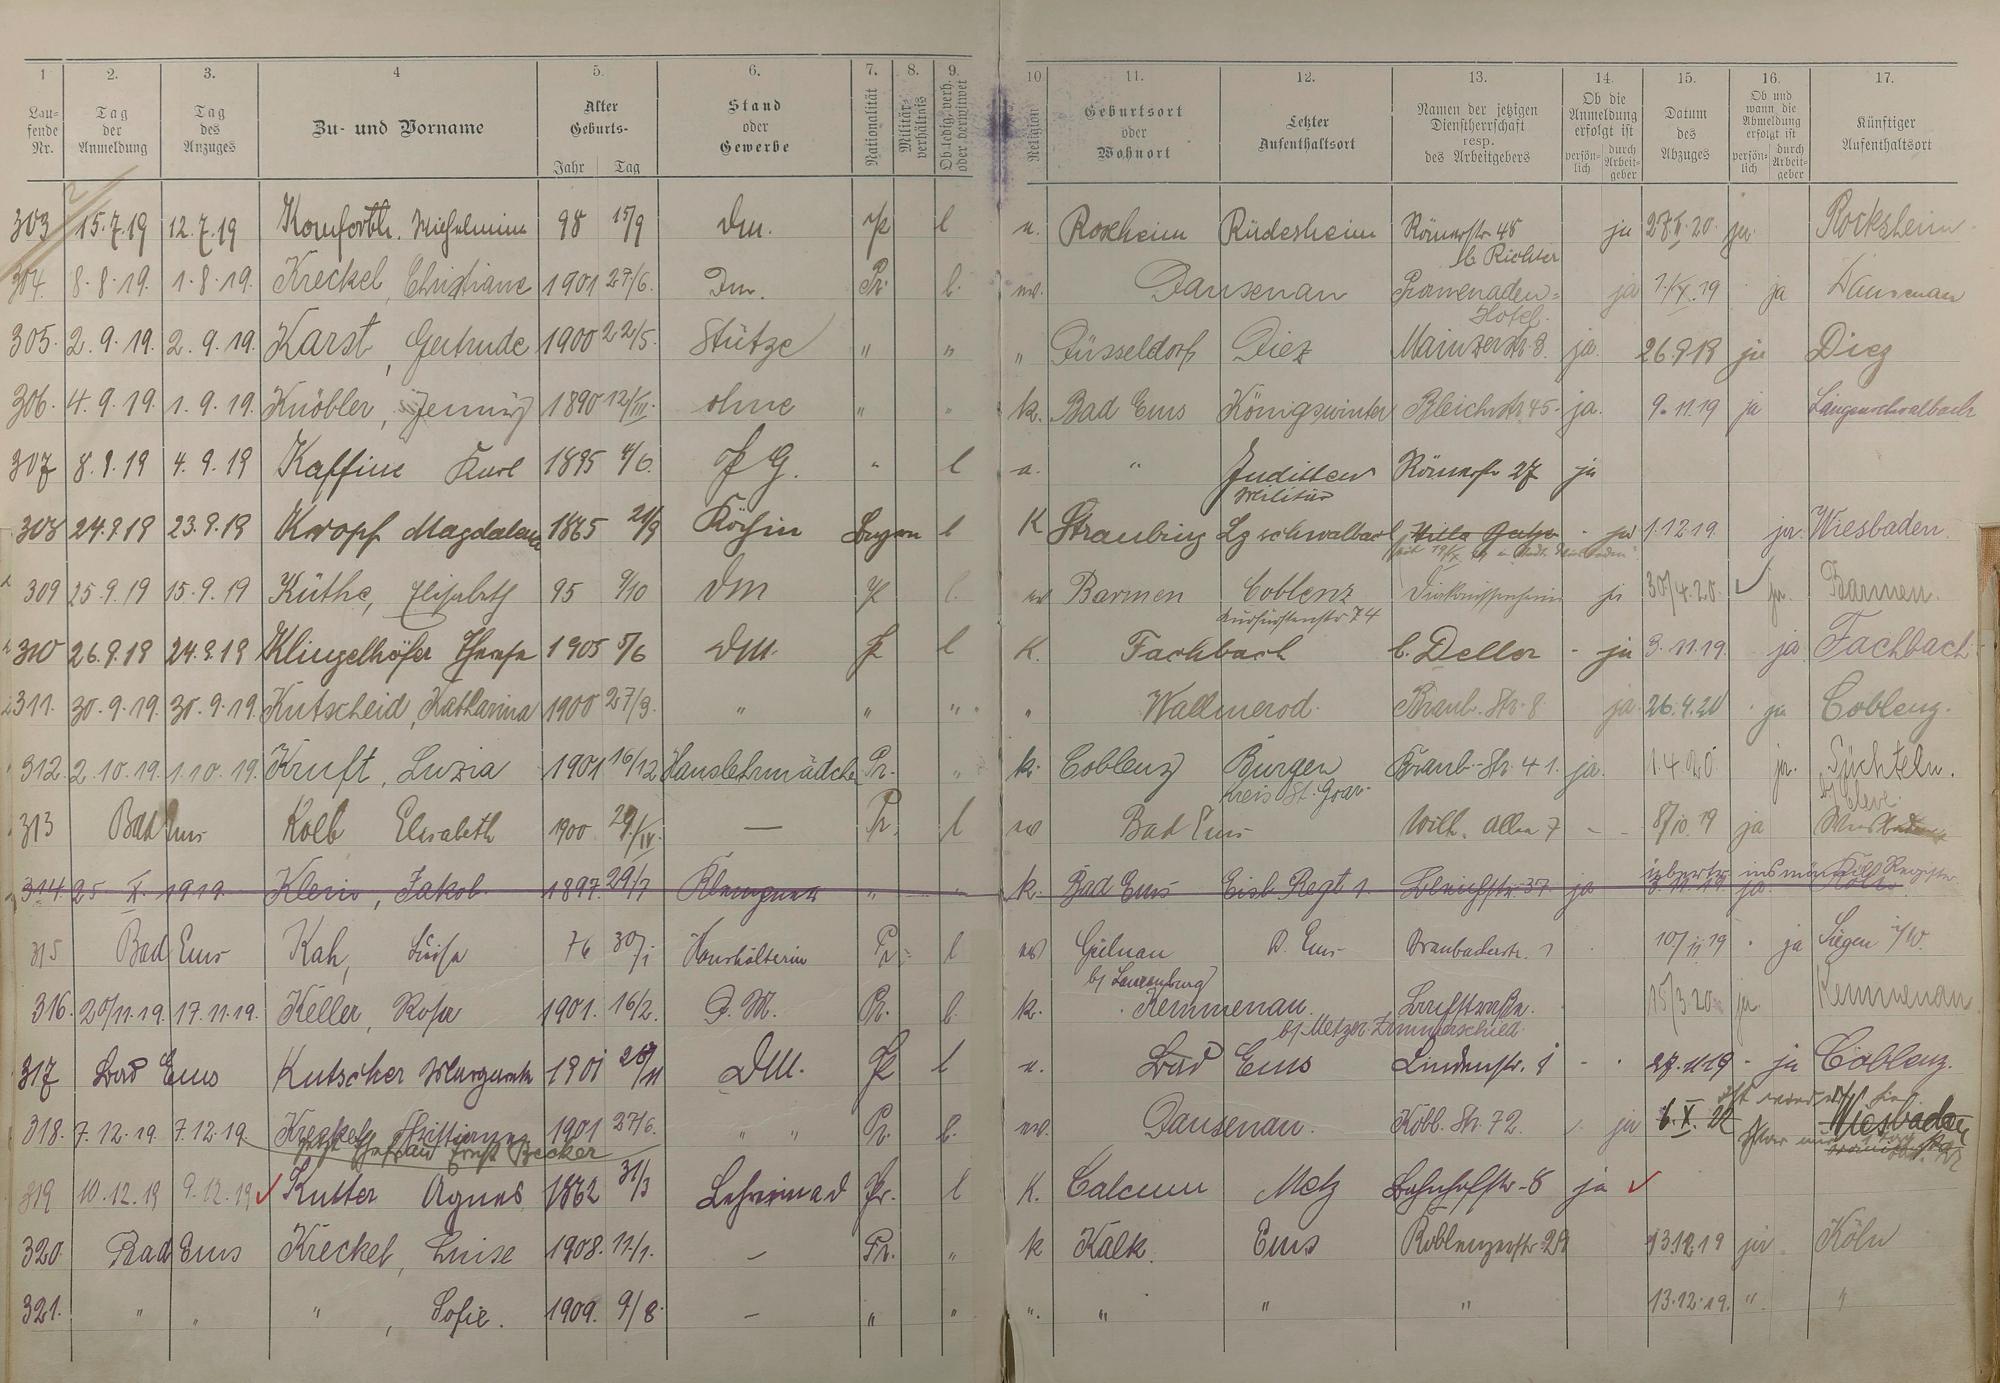 1 2. 3. 4 5. 6. 7. 8. 9. 10 11. 12. 13. 14. 15. 16. 17.
Laufende Nr. Tag der Anmeldung Tag des Anzuges Zu- und Vorname Alter Geburts- Jahr Tag Stand oder Gewerbe Nationalität Militärverhältnis Ob ledig, verh. oder verwitwet Religion Geburtsort oder Wohnort Letzter Aufenthaltsort Namen der jetzigen Dienstherrschaft resp. des Arbeitgebers Ob die Anmeldung erfolgt ist persönlich durch Arbeitgeber Datum des Abzuges Ob und wann die Abmeldung erfolgt ist persönlich durch Arbeitgeber Künftiger Aufenthaltsort
303 15.7.19 12.7.19 Komforth. Wilhelmine 98 15/9 Dm. Pr l e. Roxheim Rüdesheim Römerstr. 48 ja ja Rocksheim
b. Richter
304. 8.8.19. 1.8.19. Kreckel, Christiane 1901 27/6. Dm. Pr. l. ev. Dausenau Promenaden= ja 1/X.19 ja Dausenau
Hotel.
305. 2.9.19. 2.9.19. Karst, Gertrude 1900 22/5. Stütze " " " Düsseldorf Diez Mainzerstr. 8. ja. 26.9.19 ja Diez
306. 4.9.19. 1.9.19. Knöbler, Jenny 1890 12/III. ohne " " k. Bad Ems Königswinter Bleichstr. 45. ja. 9.11.19 ja Langenschwalbach
307 8.9.19 4.9.19 Kaffine Karl 1895 4/6. " l e. " Römerstr 27 ja
Militär
308 24.9.19 23.9.19 Kropf Magdalena 1865 21/9 Köchin Bayern l K Straubing Lg schwalbach - ja 1.12.19. ja. Wiesbaden.
309 25.9.19 15.9.19 Küthe, Elisabeth 95 9/10 Dm Pr l. ev Barmen Coblenz Diakonissenheim ja 30/4.20. ja. Barmen.
Kurfürstenstr 74
310 26.9.19 24.9.19 Klingelhöfer Therese 1905 5/6 Dm. Pr l K. Fachbach b. Deller - ja 3.11.19. ja Fachbach
311. 30.9.19. 30.9.19. Kutscheid, Katharina 1900 27/3. " " " " Wallmerod. Braub. Str. 8. ja. 26.4.20 ja Coblenz.
312. 2.10.19. 1.10.19. Kruft, Luzia 1901 16/12 Hauslehrmädchen Pr. " k. Coblenz Burgen Braub. Str. 41. ja. 1.4.20. ja. Süchteln.
Kreis St. Goar. b/ Cleve.
313 Bad Ems Kolb Elisabeth 1900 29/IV. — Pr. l ev Bad Ems Wilh. Allee 7 - - 8/10.19 ja
314. 25. X. 1919. Klein, Jakob. 1897. 29/7 Klempner " " k. Bad Ems Eisb. Regt 1. Bleichstr. 37 ja 3.11.19. ja. Köln
übertr. ins männl. Register
315 Bad Ems Kah, Luise 76 30/I Haushälterin Pr. l ev B. Ems Braubacherstr. 10/11 19 ja Siegen i/W.
316. 20/11.19. 17.11.19. Keller, Rosa 1901. 16/2. D. M. Pr. l. k. Kemmenau. 15/3.20 ja Kemmenau
b/ Metzger Zimmerschied.
317 Bad Ems Kutscher Margareta 1901 28/11 DM. Pr l e. Bad Ems Lindenstr. 27.11.19 - ja Coblenz.
318. 7.12.19. 7.12.19. Kreckel, Christiane 1901 27/6. " " Pr. l. ev. Dausenau. Kobl. Str. 72. ja Wiesbaden
jetzt Ehefrau Ernst Becker
319 10.12.19 9.12.19 Kutter Agnes 1862 31/3 Pr. l K. Calcum Metz Bahnhofstr. 8 ja
320. Bad Ems Kreckel, Luise 1908. 11/1. — Pr. " k Kalk. Ems Koblenzerstr 13.12.19 ja Köln
321. " " " , Sofie. 1909. 9/8. — " " ". " " " 13.12.19. " "